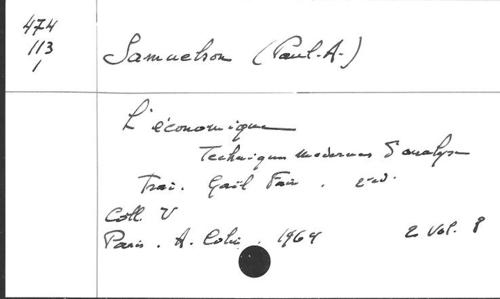 474
113
1
Samuelson (Paul-A-)
L'économique
Techniques modernes d'analyse
Trad. Gaël Fain.
Coll. U
Paris. A. Colin. 1964 2 Vol. 8